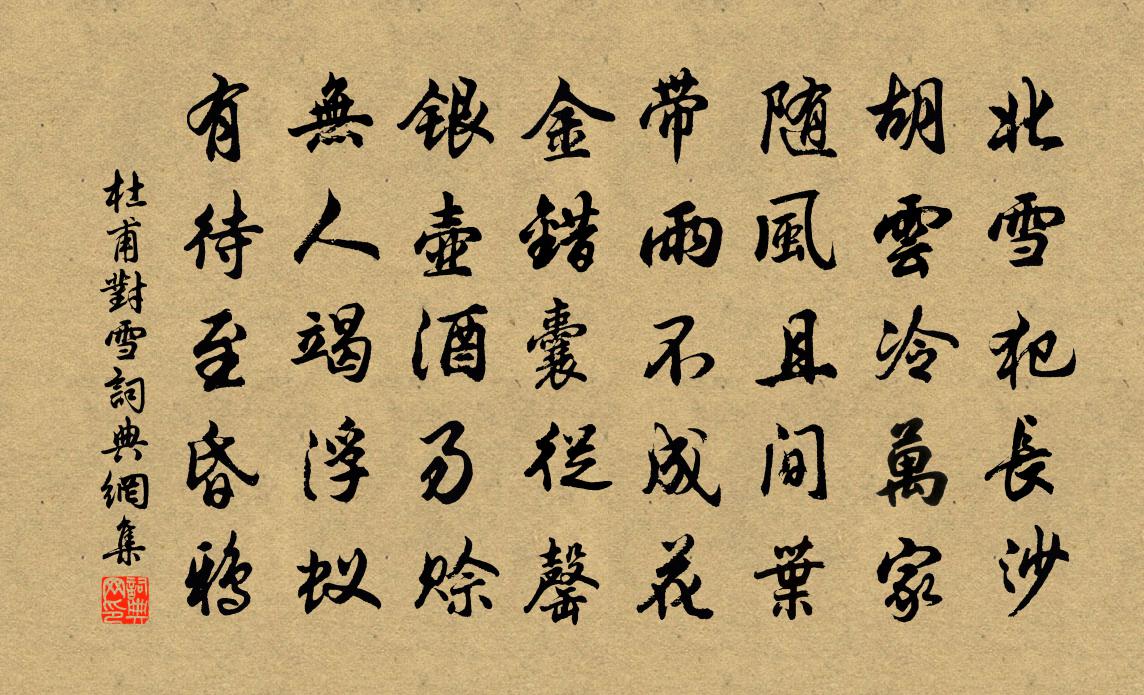 北雪犯長沙
胡雲冷萬家
随風且間葉
帶雨不成花
金錯囊從罄
銀壺酒易賒
無人竭浮蚁
有待至昏鴉
杜甫對雪詞典網集
詞典网印